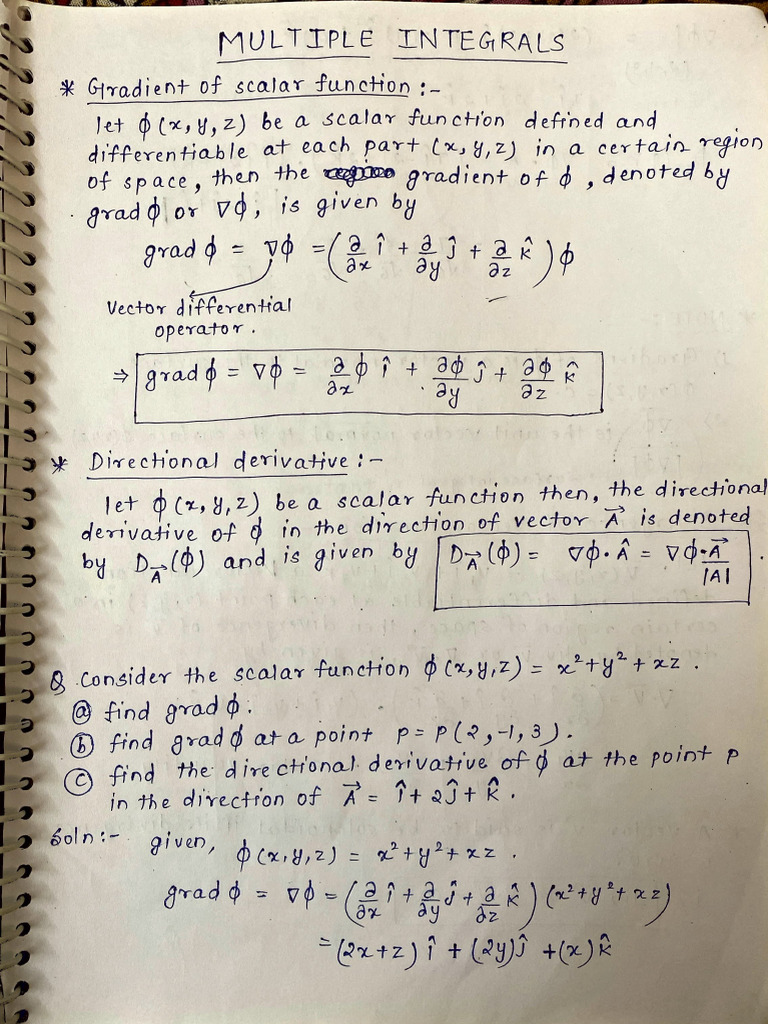 MULTIPLE INTEGRALS
* Gradient of scalar function :-
let ϕ(x,y,z) be a scalar function defined and
differentiable at each part (x,y,z) in a certain region
of space, then the gradient of ϕ, denoted by
grad ϕ or ∇ϕ, is given by
grad ϕ = ∇ϕ = (∂/∂x î + ∂/∂y ĵ + ∂/∂z k̂) ϕ
Vector differential
operator.
⇒ grad ϕ = ∇ϕ = ∂/∂x ϕ î + ∂ϕ/∂y ĵ + ∂ϕ/∂z k̂
* Directional derivative :-
let ϕ(x,y,z) be a scalar function then, the directional
derivative of ϕ in the direction of vector A⃗ is denoted
by D_A⃗(ϕ) and is given by D_A⃗(ϕ) = ∇ϕ·Â = ∇ϕ·A⃗/|A|
Q Consider the scalar function ϕ(x,y,z) = x²+y²+xz.
ⓐ find grad ϕ.
ⓑ find grad ϕ at a point p = p(2,-1,3).
ⓒ find the directional derivative of ϕ at the point p
in the direction of A⃗ = î+2ĵ+k̂.
Soln:- given, ϕ(x,y,z) = x²+y²+xz.
grad ϕ = ∇ϕ = (∂/∂x î + ∂/∂y ĵ + ∂/∂z k̂) (x²+y²+xz)
= (2x+z) î + (2y) ĵ + (x) k̂